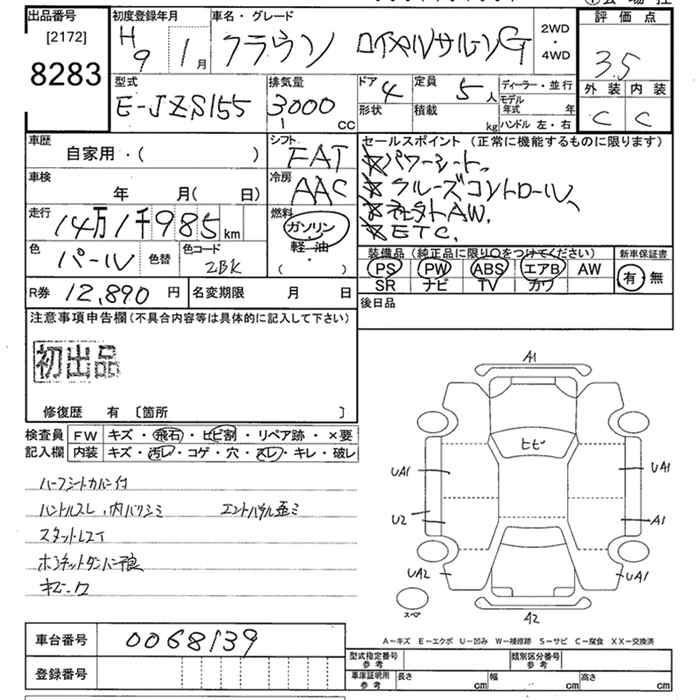 出品番号 初度登録年月 車名・グレード 評価点
[2172] H 9 1月 クラウン ロイヤルサルーンG 2WD・4WD 3.5
8283
型式 排気量 ドア 4 定員 5人 ディーラー・並行 外装 内装
E-JZS155 3000 cc 形状 積載 kg モデル年式 年 C C
ハンドル 左・右
車歴 シフト セールスポイント (正常に機能するものに限ります)
自家用・( ) FAT ☆パワーシート、
車検 冷房 ☆クルーズコントロール、
年 月( 日) AAC ☆社外AW.
走行 燃料 ☆ETC.
14万1千985km ガソリン・軽油
色 パール 色替 色コード 2BK ( ・ )
装備品 (純正品に限り○をつけてください) 新車保証書
PS PW ABS エアB AW 有・無
SR ナビ TV カワ
R券 12,890円 名変期限 月 日 後日品
注意事項申告欄(不具合内容等は具体的に記入して下さい)
初出品
修復歴 有 〔箇所 〕
検査員 FW キズ・飛石・ヒビ割・リペア跡・×要
記入欄 内装 キズ・汚レ・コゲ・穴・スレ・キレ・破レ
ハーフシートカバー付
ハンドルスレ、内バリシミ
スタットレスイ
A1
ヒビ
UA1 UA1
U2 A1
UA2 UA1
スペア
A2
A-キズ E-エクボ U-凹み W-補修跡 S-サビ C-腐食 XX-交換済
車台番号 0068139
登録番号
型式指定番号 参考 類別区分番号 参考
車庫証明用 参考 長さ cm 幅 cm 高さ cm